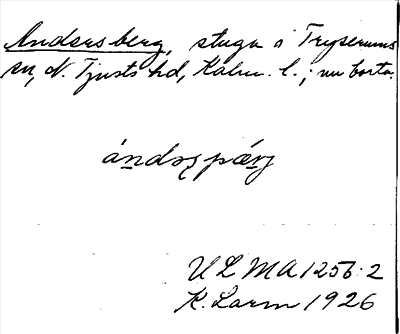 Andersberg, stuga i Tryserums
sn, N. Tjusts hd, Kalm. l.; nu borta.
ándəʂpærj
ULMA 1256:2
K. Larm 1926